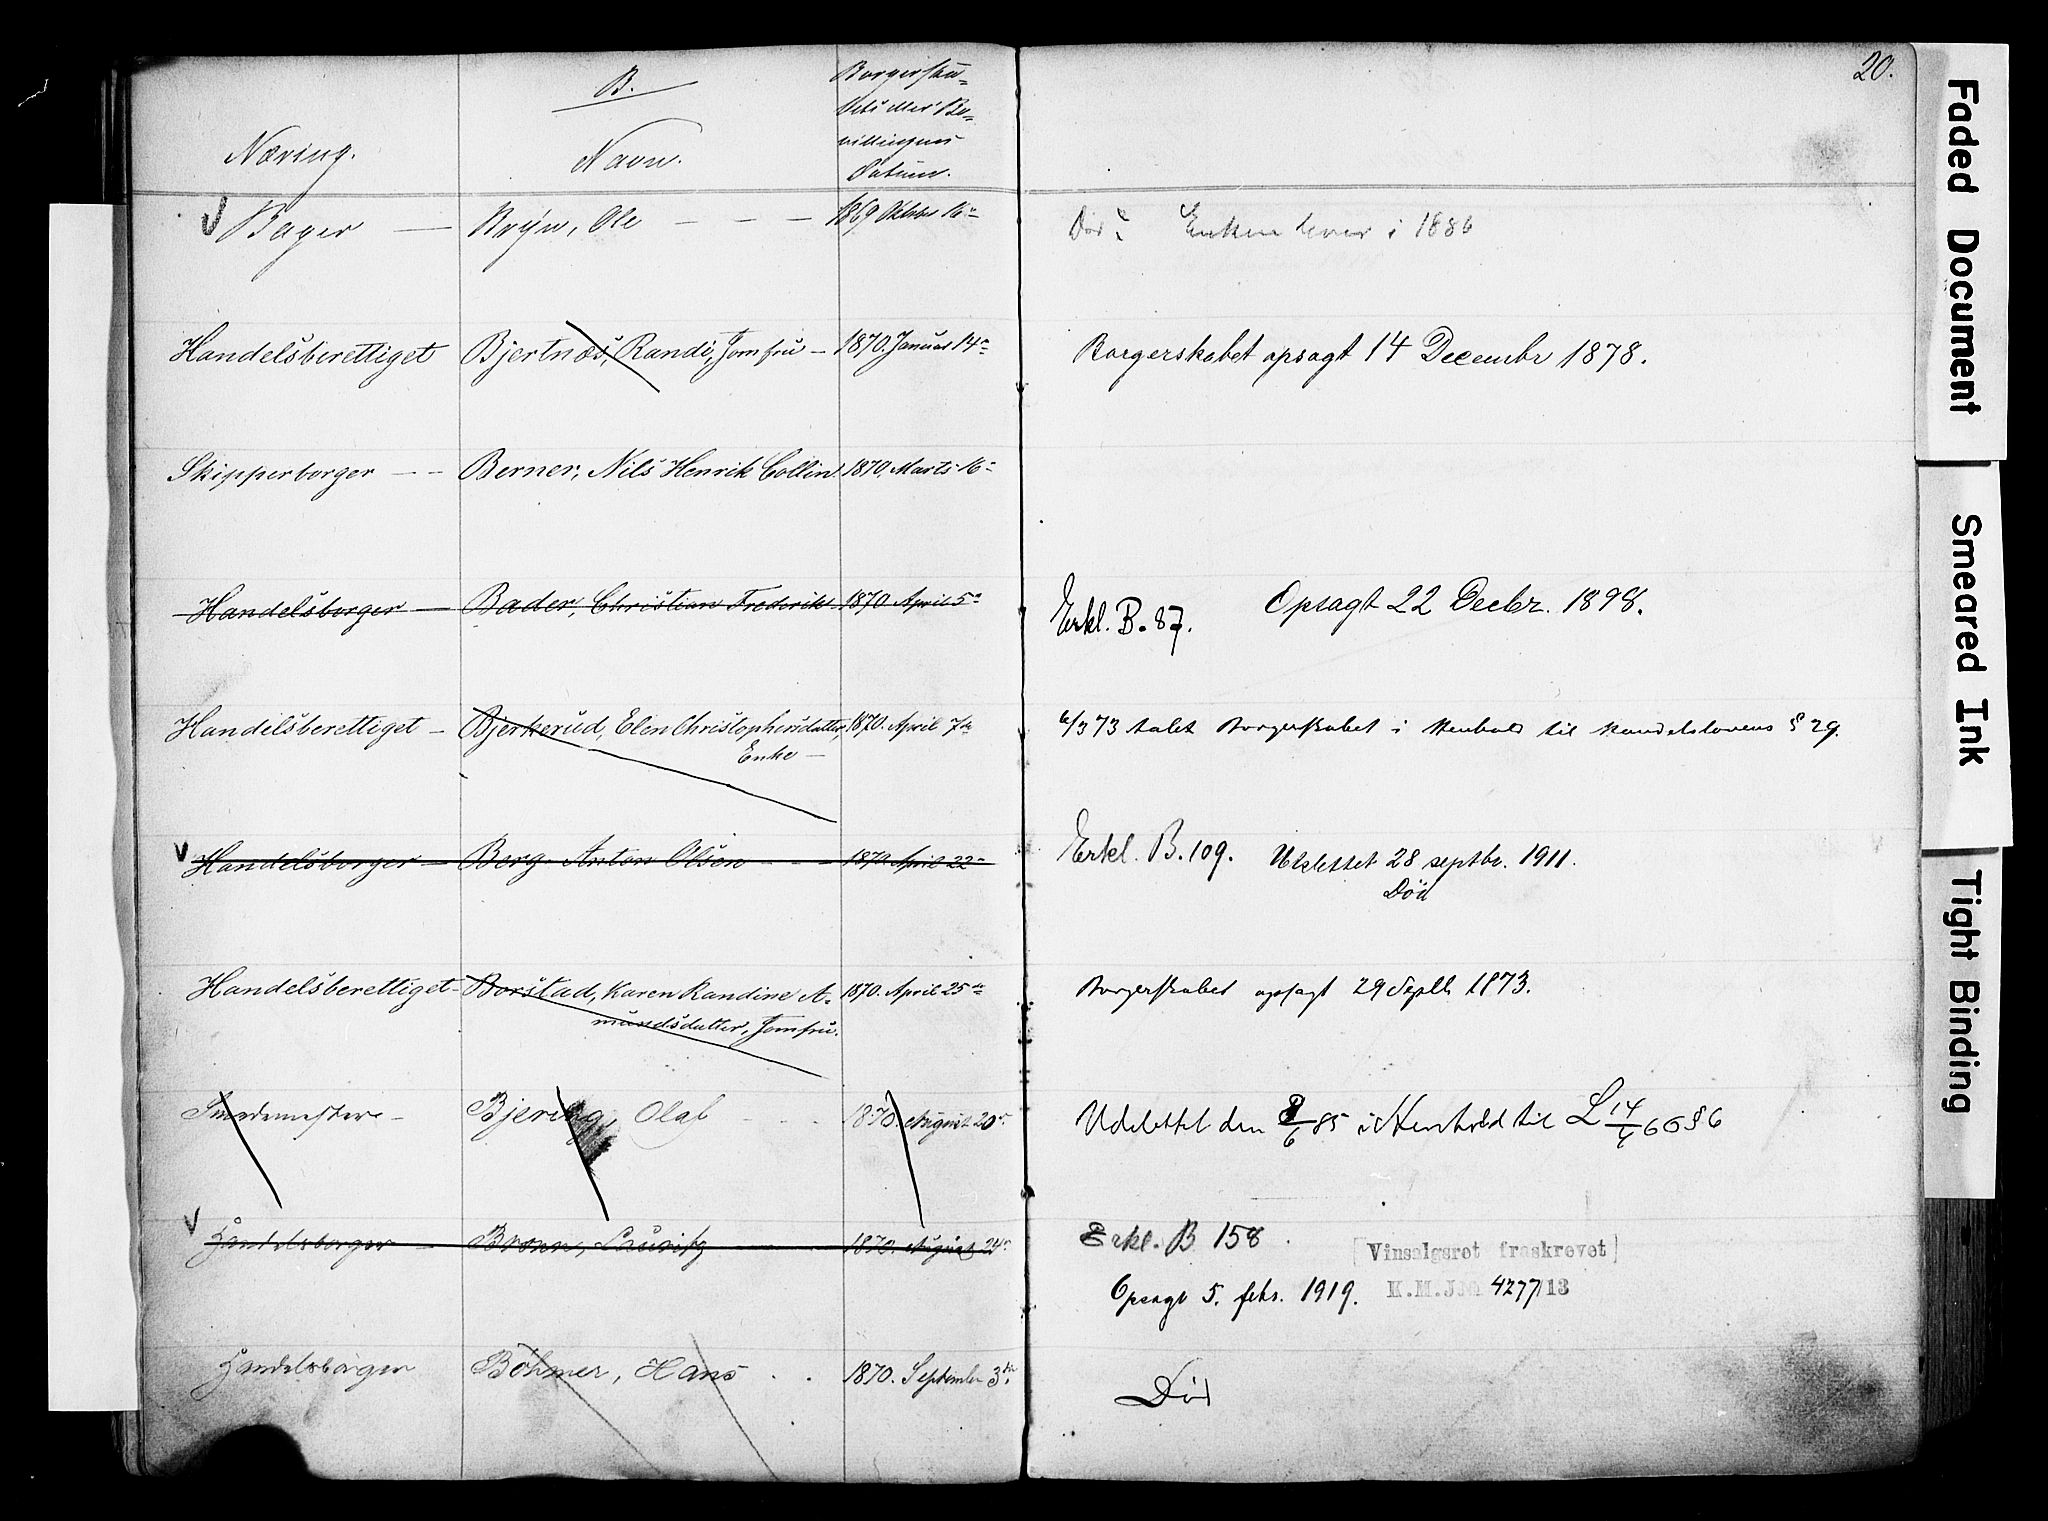 B.
20.
Næring.
Navn.
Borgerska-
bets eller Be-
villingens
Datum.
Bager — Bryn, Ole — — — 1869 Oktober 16de
Död. Enken lever i 1886
Handelsberettiget Bjertnæs, Randi, Jomfru — 1870. Januar 14de
Borgerskabet opsagt 14 Decembr 1878.
Skipperborger — — Berner, Nils Henrik Collin. 1870. Marts 16de
Handelsborger — Bader, Christian Frederik 1870. April 5te
Erkl. B. 87. Opsagt 22 Decbr. 1898.
Handelsberettiget — Bjerkerud, Elen Christophersdatter, 1870. April 7de
Enke —
6/3 73 tabt Borgerskabet i Henhold til Handelslovens § 29.
Handelsborger — Berg Anton Olsen — — — 1870 April 22de
Erkl. B. 109. Udslettet 28 septbr. 1911.
Död
Handelsberettiget — Borstad, Karen Randine A- 1870. April 25de
mundsdatter, Jomfru.
Borgerskabet opsagt 29 Septbr 1873.
Smedemester — Bjering, Olaf — — 1870. August 20de
Udslettet den 8/6 85 i Henhold til L 14/4 66 § 6
Handelsborger — Bronn, Lauritz — 1870. August 24de
Erkl. B 158.
[Vinsalgsret fraskrevet]
Opsagt 5. febr. 1919. K.M.J.No 4277/13
Handelsborger Böhmer, Hans . . 1870. September 3die
Död
Faded Document
Smeared Ink
Tight Binding